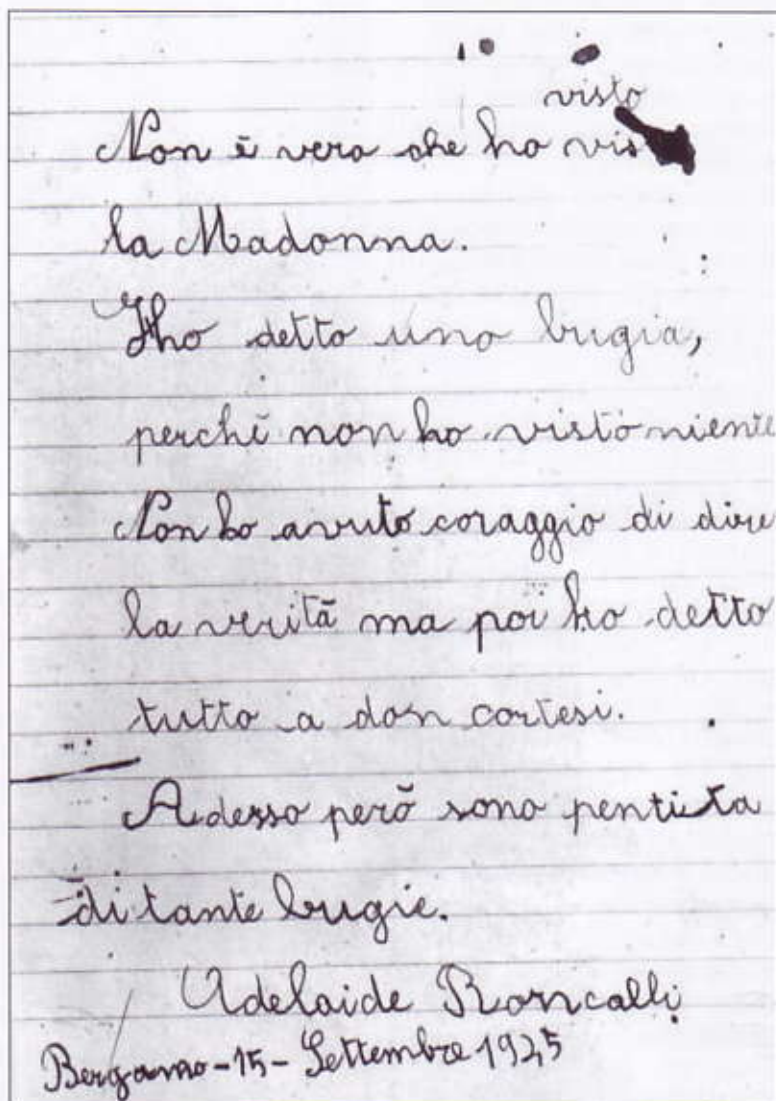 visto
Non è vero che ho vis
la Madonna.
Ho detto una bugia,
perchè non ho visto niente
Non ho avuto coraggio di dire
la verità ma poi ho detto
tutto a don cortesi.
Adesso però sono pentita
di tante bugie.
Adelaide Roncalli
Bergamo-15-Settembre 1945